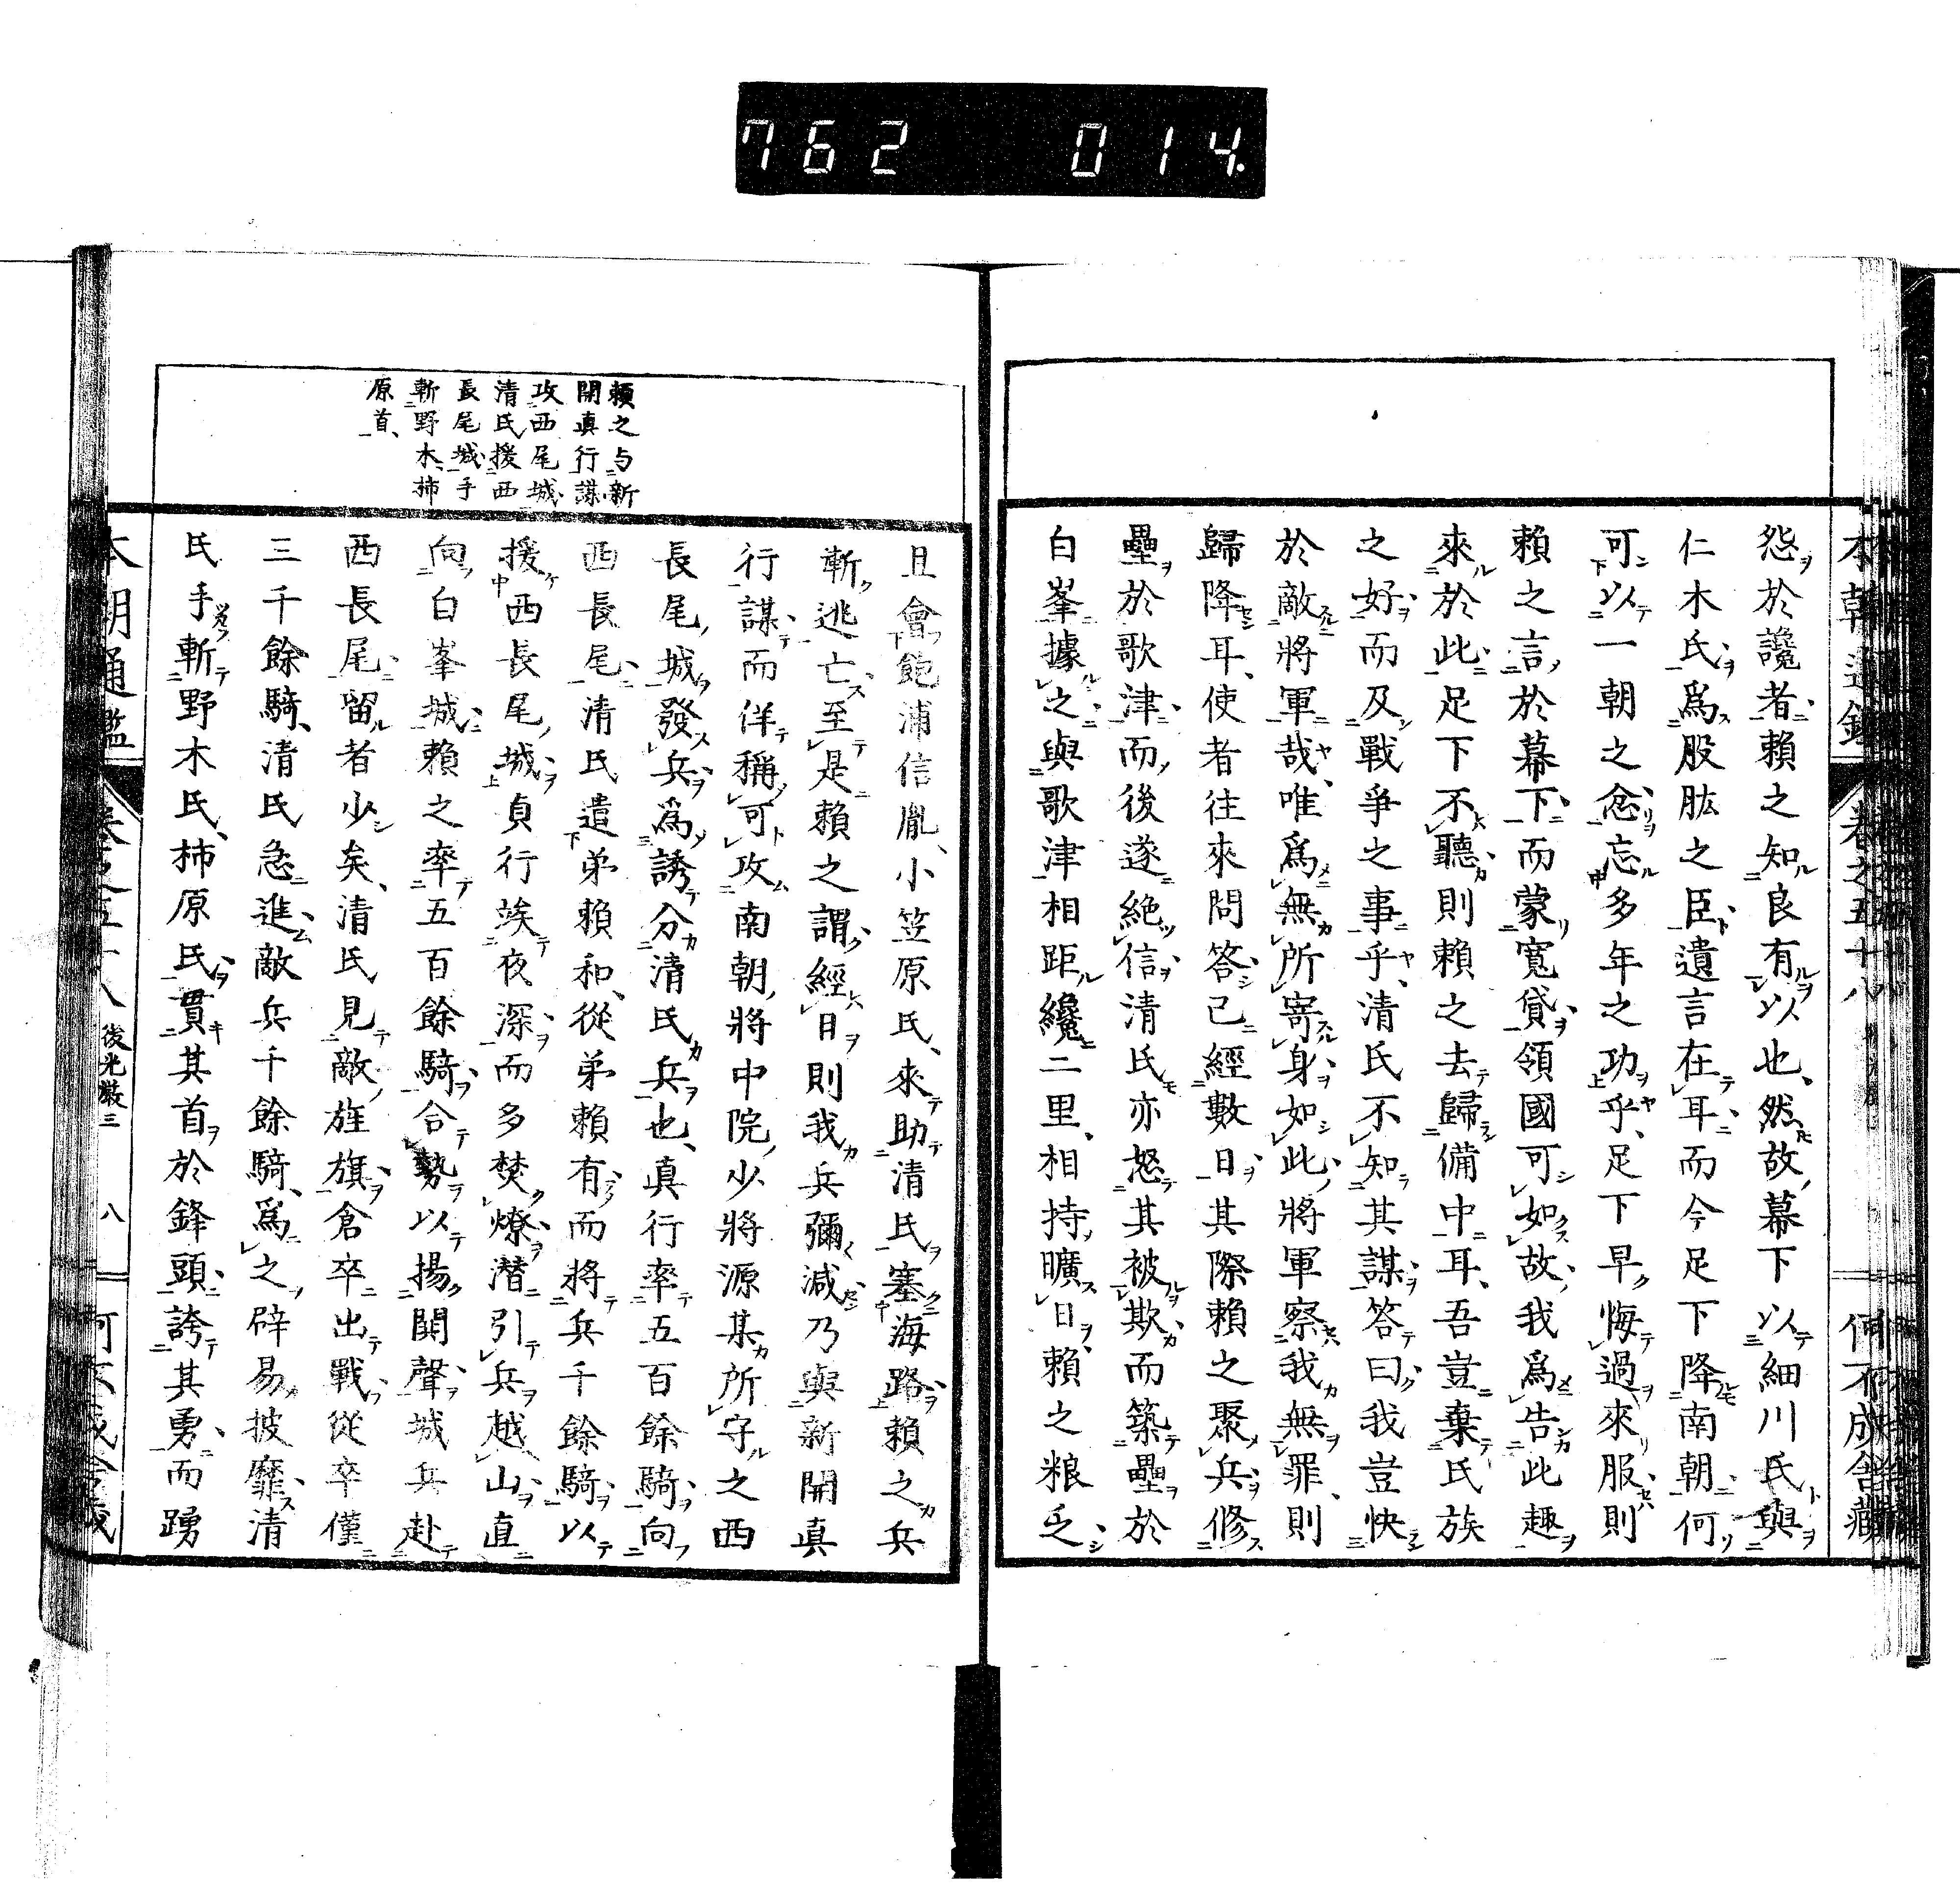 762 014.
本朝通鑑 卷之五十八 何不成舍藏
怨於讒者賴之知良有以也然故幕下以細川氏與
仁木氏爲股肱之臣遺言在耳而今足下降南朝何
可以一朝之忿忘多年之功乎足下早悔過來服則
賴之言於幕下而蒙寬貸領國可如故我爲告此趣
來於此足下不聽則賴之去歸備中耳吾豈棄氏族
之好而及戰爭之事乎清氏不知其謀答曰我豈快
於敵將軍哉唯爲無所寄身如此將軍察我無罪則
歸降耳使者往來問答已經數日其際賴之聚兵修
壘於歌津而後遂絶信清氏亦怒其被欺而築壘於
白峯據之與歌津相距纔二里相持曠日賴之粮乏
賴之与新
開眞行謀
攻西尾城
清氏援西
長尾城手
斬野木柿
原首
且會飽浦信胤小笠原氏來助清氏塞海路賴之兵
斬逃亡至是賴之謂經日則我兵彌減乃與新開眞
行謀而佯稱可攻南朝將中院少將源某所守之西
長尾城發兵爲誘分清氏兵也眞行率五百餘騎向
西長尾清氏遣弟賴和從弟賴有而將兵千餘騎以
援西長尾城貞行竢夜深而多焚燎潜引兵越山直
向白峯城賴之率五百餘騎合勢以揚鬨聲城兵赴
西長尾留者少矣清氏見敵旌旗倉卒出戰從卒僅
三千餘騎清氏急進敵兵千餘騎爲之辟易披靡清
氏手斬野木氏柿原氏貫其首於鋒頭誇其勇而踴
本朝通鑑 卷之五十八 後光嚴三 八 何不成舍藏